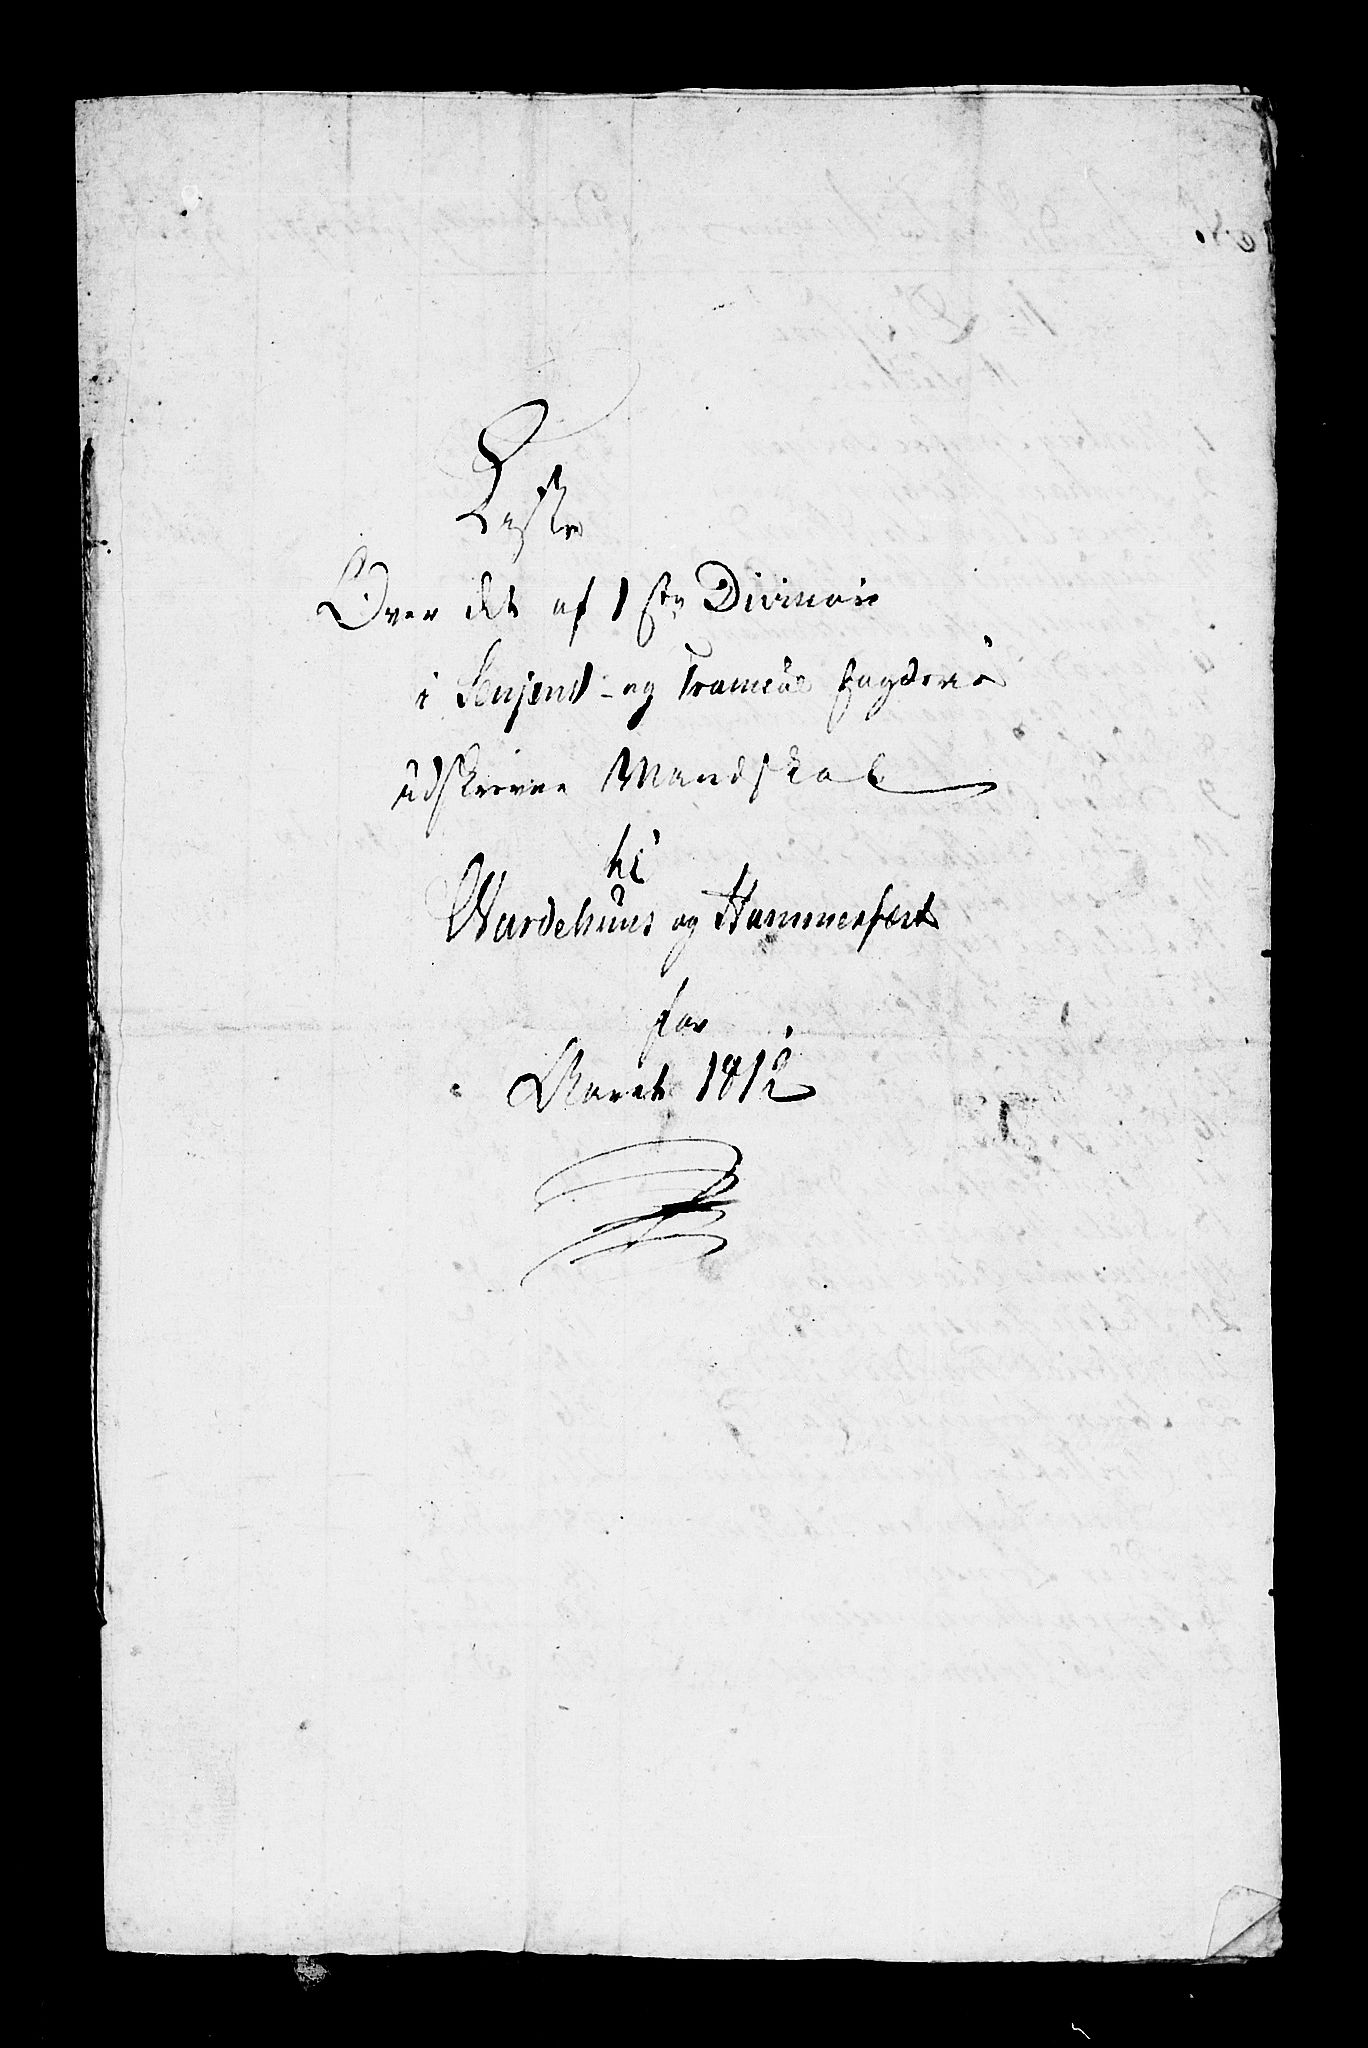 Liste
Over det af 1ste Division
i Senjens- og Tromsöe Fogderie
udskrevne Mandskab
til
Wardehuus og Hammerfest
for
Aaret 1812